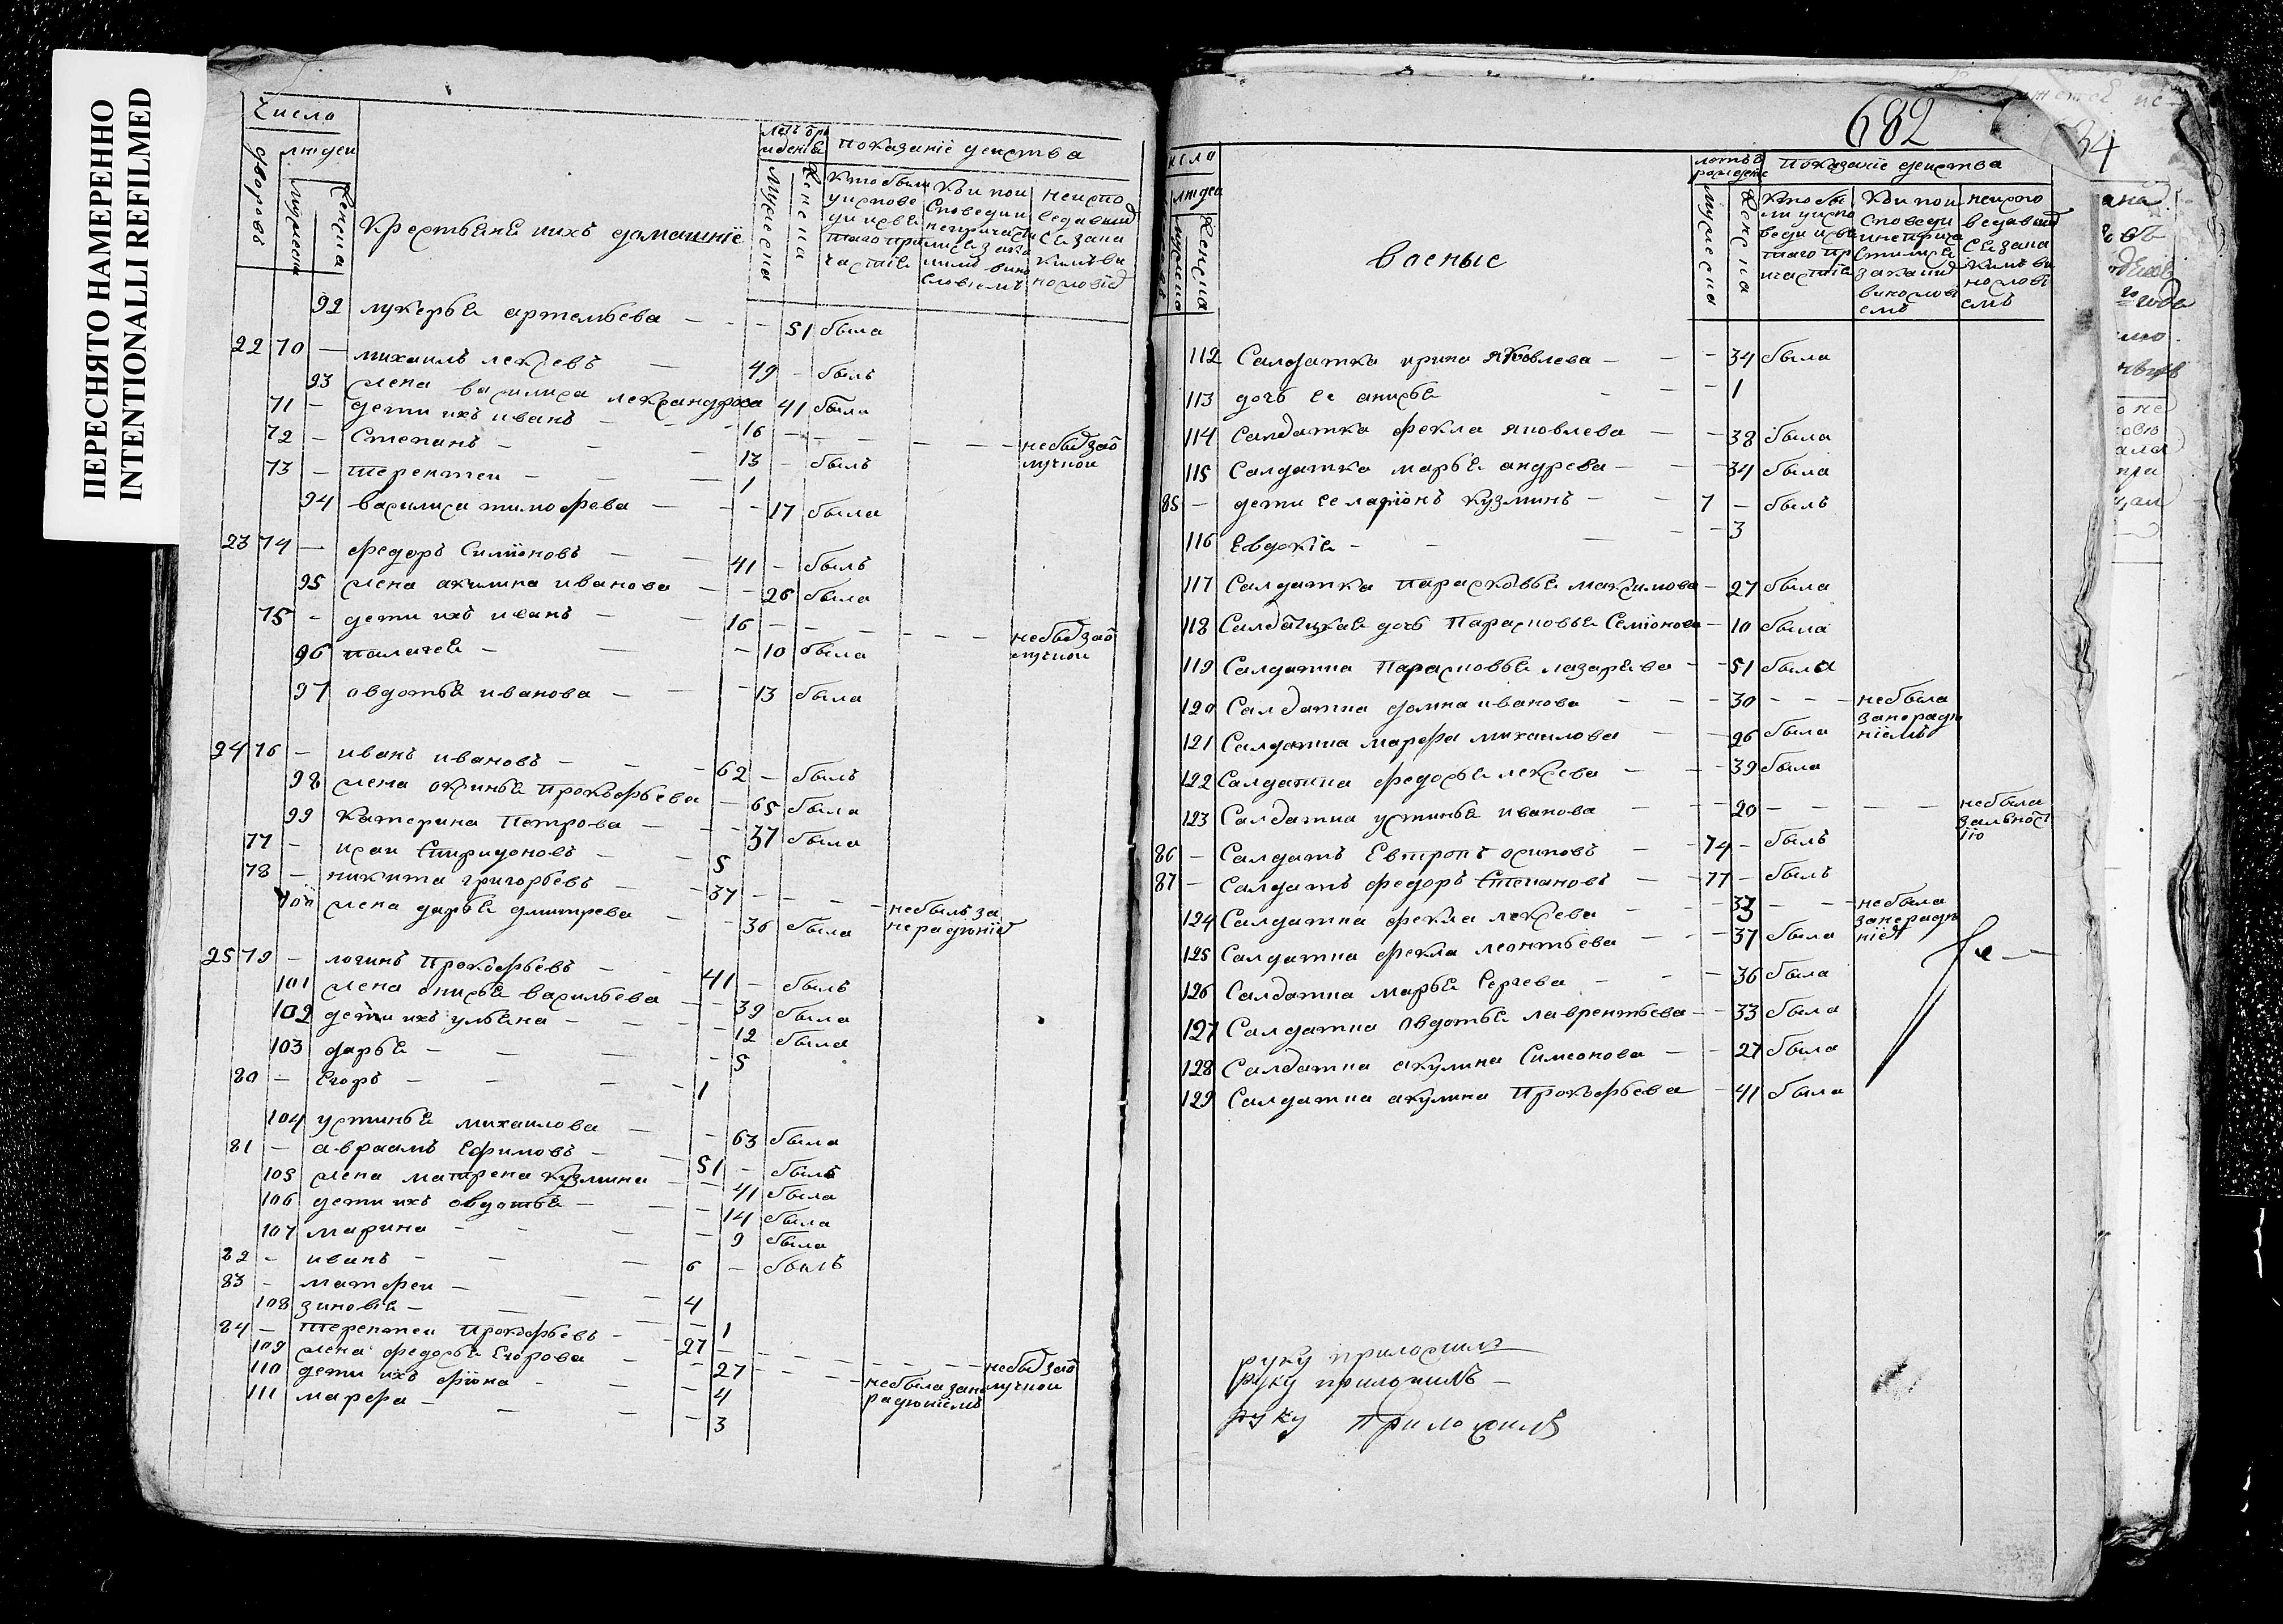 ПЕРЕСНЯТО НАМЕРЕННО
INTENTIONALLI REFILMED
Число
людеи
дворовъ
мужеска
женска
Крестьянѣ ихъ домашние
Показаніе действа
мужеска
женска
92 лукерья артемьева — — — 51 была
22 70 — михаилъ лексевъ — 49 — былъ
93 жена василиса лександрова 41 была
71 — дети ихъ иванъ — — — 16 — — — — — небы зао
72 — Степанъ — — — 13 — былъ лучкои
73 — терентеи — — — 1
94 василиса тимофева — — — 17 была
23 74 — федоръ Симионовъ — — 41 — былъ
95 жена акилина иванова — — 26 была
75 — дети ихъ иванъ — — 16 — — — — — небы зао
96 палагея — — — 10 была лучкои
97 овдотья иванова — — — 13 была
24 76 — иванъ ивановъ — — — 62 — былъ
98 жена оксинья Прокофьева — 65 была
99 Катерина Петрова — — — 37 была
77 — исаи Спиридоновъ — — 5
78 — никита григорьевъ — — 37 — — — небылъ за
100 жена дарья дмитрева — — 36 была нерадение
25 79 — логинъ Прокофьевъ — — 41 — былъ
101 жена анисья васильева — — 39 была
102 дети ихъ ульяна — — — 12 была
103 дарья — — — — 5
80 — Егоръ — — — — 1
104 устинья михаилова — — 63 была
81 — авраамъ Ефимовъ — — 51 — былъ
105 жена матрена кузмина — — 41 была
106 дети ихъ овдотья — — — 14 была
107 марина — — — — 9 была
82 — иванъ — — — 6 — былъ
83 — матфеи — — — 4
108 зиновья — — — — 1
84 — терентеи Прокофьевъ — 27 — — — — — небы зао
109 жена федосья Егорова — — 27 — — небыла зане лучкои
110 дети ихъ фиона — — — 4 радениемъ
111 марфа — — — — 3
682
34
исла
людеи
мужеска
женска
военые
Показаніе действа
мужеска
женска
112 Салдатка ирина Яковлева — — — 34 была
113 дочь ее анисья — — — 1
114 Салдатка фекла яковлева — — 38 была
115 Салдатка марья андрева — — 34 была
85 — дети ее лариионъ кузминъ — — 7 — былъ
116 Евдокія — — — — 3
117 Салдатка парасковья максимова — 27 была
118 Салдатцкая дочь Парасковья Семионова — 10 была
119 Салдатка Парасковья лазарева — — 51 была
120 Салдатка домна иванова — — — 30 — — — небыла
занераде
121 Салдатка марфа михаилова — — 26 была ніемъ
122 Салдатка федосья лексева — — — 39 была
123 Салдатка устинья иванова — — — 20 — — — — небыла
86 — Салдатъ Евтропъ осиповъ — — 74 — былъ
87 — Салдатъ федоръ Степановъ — — 77 — былъ
124 Салдатка фекла лексева — — — 33 — — — небыла
занераде
125 Салдатка фекла леонтьева — — — 37 была
126 Салдатка марья Сергева — — — 36 была
127 Салдатка овдотья лаврентьева — — 33 была
128 Салдатка акулина Симеонова — — 27 была
129 Салдатка акулина Прокофьева — 41 была
руку приложилъ
руку приложилъ —
руку Приложилъ